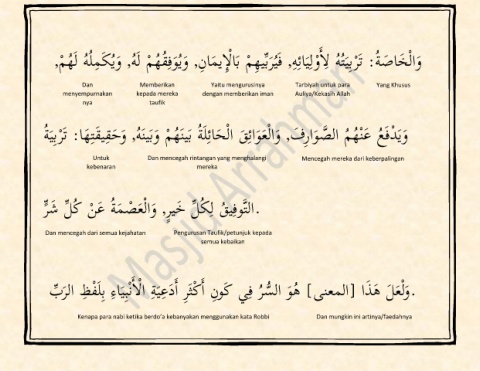 وَالْخَاصَةُ: تَرْبِيَتُهُ لِأَوْلِيَائِهِ, فَيُرَبِّيهِمْ بَالْإِيمَانِ, وَيُوَفِقُهُمْ لَهُ, وَيُكَمِلُهُ لَهُمْ,
Yang Khusus
Tarbiyah untuk para Auliya/Kekasih Allah
Yaitu mengurusinya dengan memberikan iman
Memberikan kepada mereka taufik
Dan menyempurnakan nya
وَيَدْفَعُ عَنْهُمُ الصَّوَارِفَ, وَالْعَوَائِقَ الْحَائِلَةُ بَيْنَهُمْ وَبَيْنَهُ, وَحَقِيقَتِهَا: تَرْبِيَةُ
Mencegah mereka dari keberpalingan
Dan mencegah rintangan yang menghalangi mereka
Untuk kebenaran
التَّوفِيقُ لِكُلِّ خَيرٍ, وَالْعَصْمَةُ عَنْ كُلِّ شَرٍّ.
Pengurusan Taufik/petunjuk kepada semua kebaikan
Dan mencegah dari semua kejahatan
وَلْعَلَ هَذَا [المعنى] هُوَ السُّرُ فِي كَونِ أَكْثَرِ أَدَعِيَةِ الْأَنْبِيَاءِ بِلَفْظِ الرَبِّ.
Dan mungkin ini artinya/faedahnya
Kenapa para nabi ketika berdo'a kebanyakan menggunakan kata Robbi
Masjid Arrahman